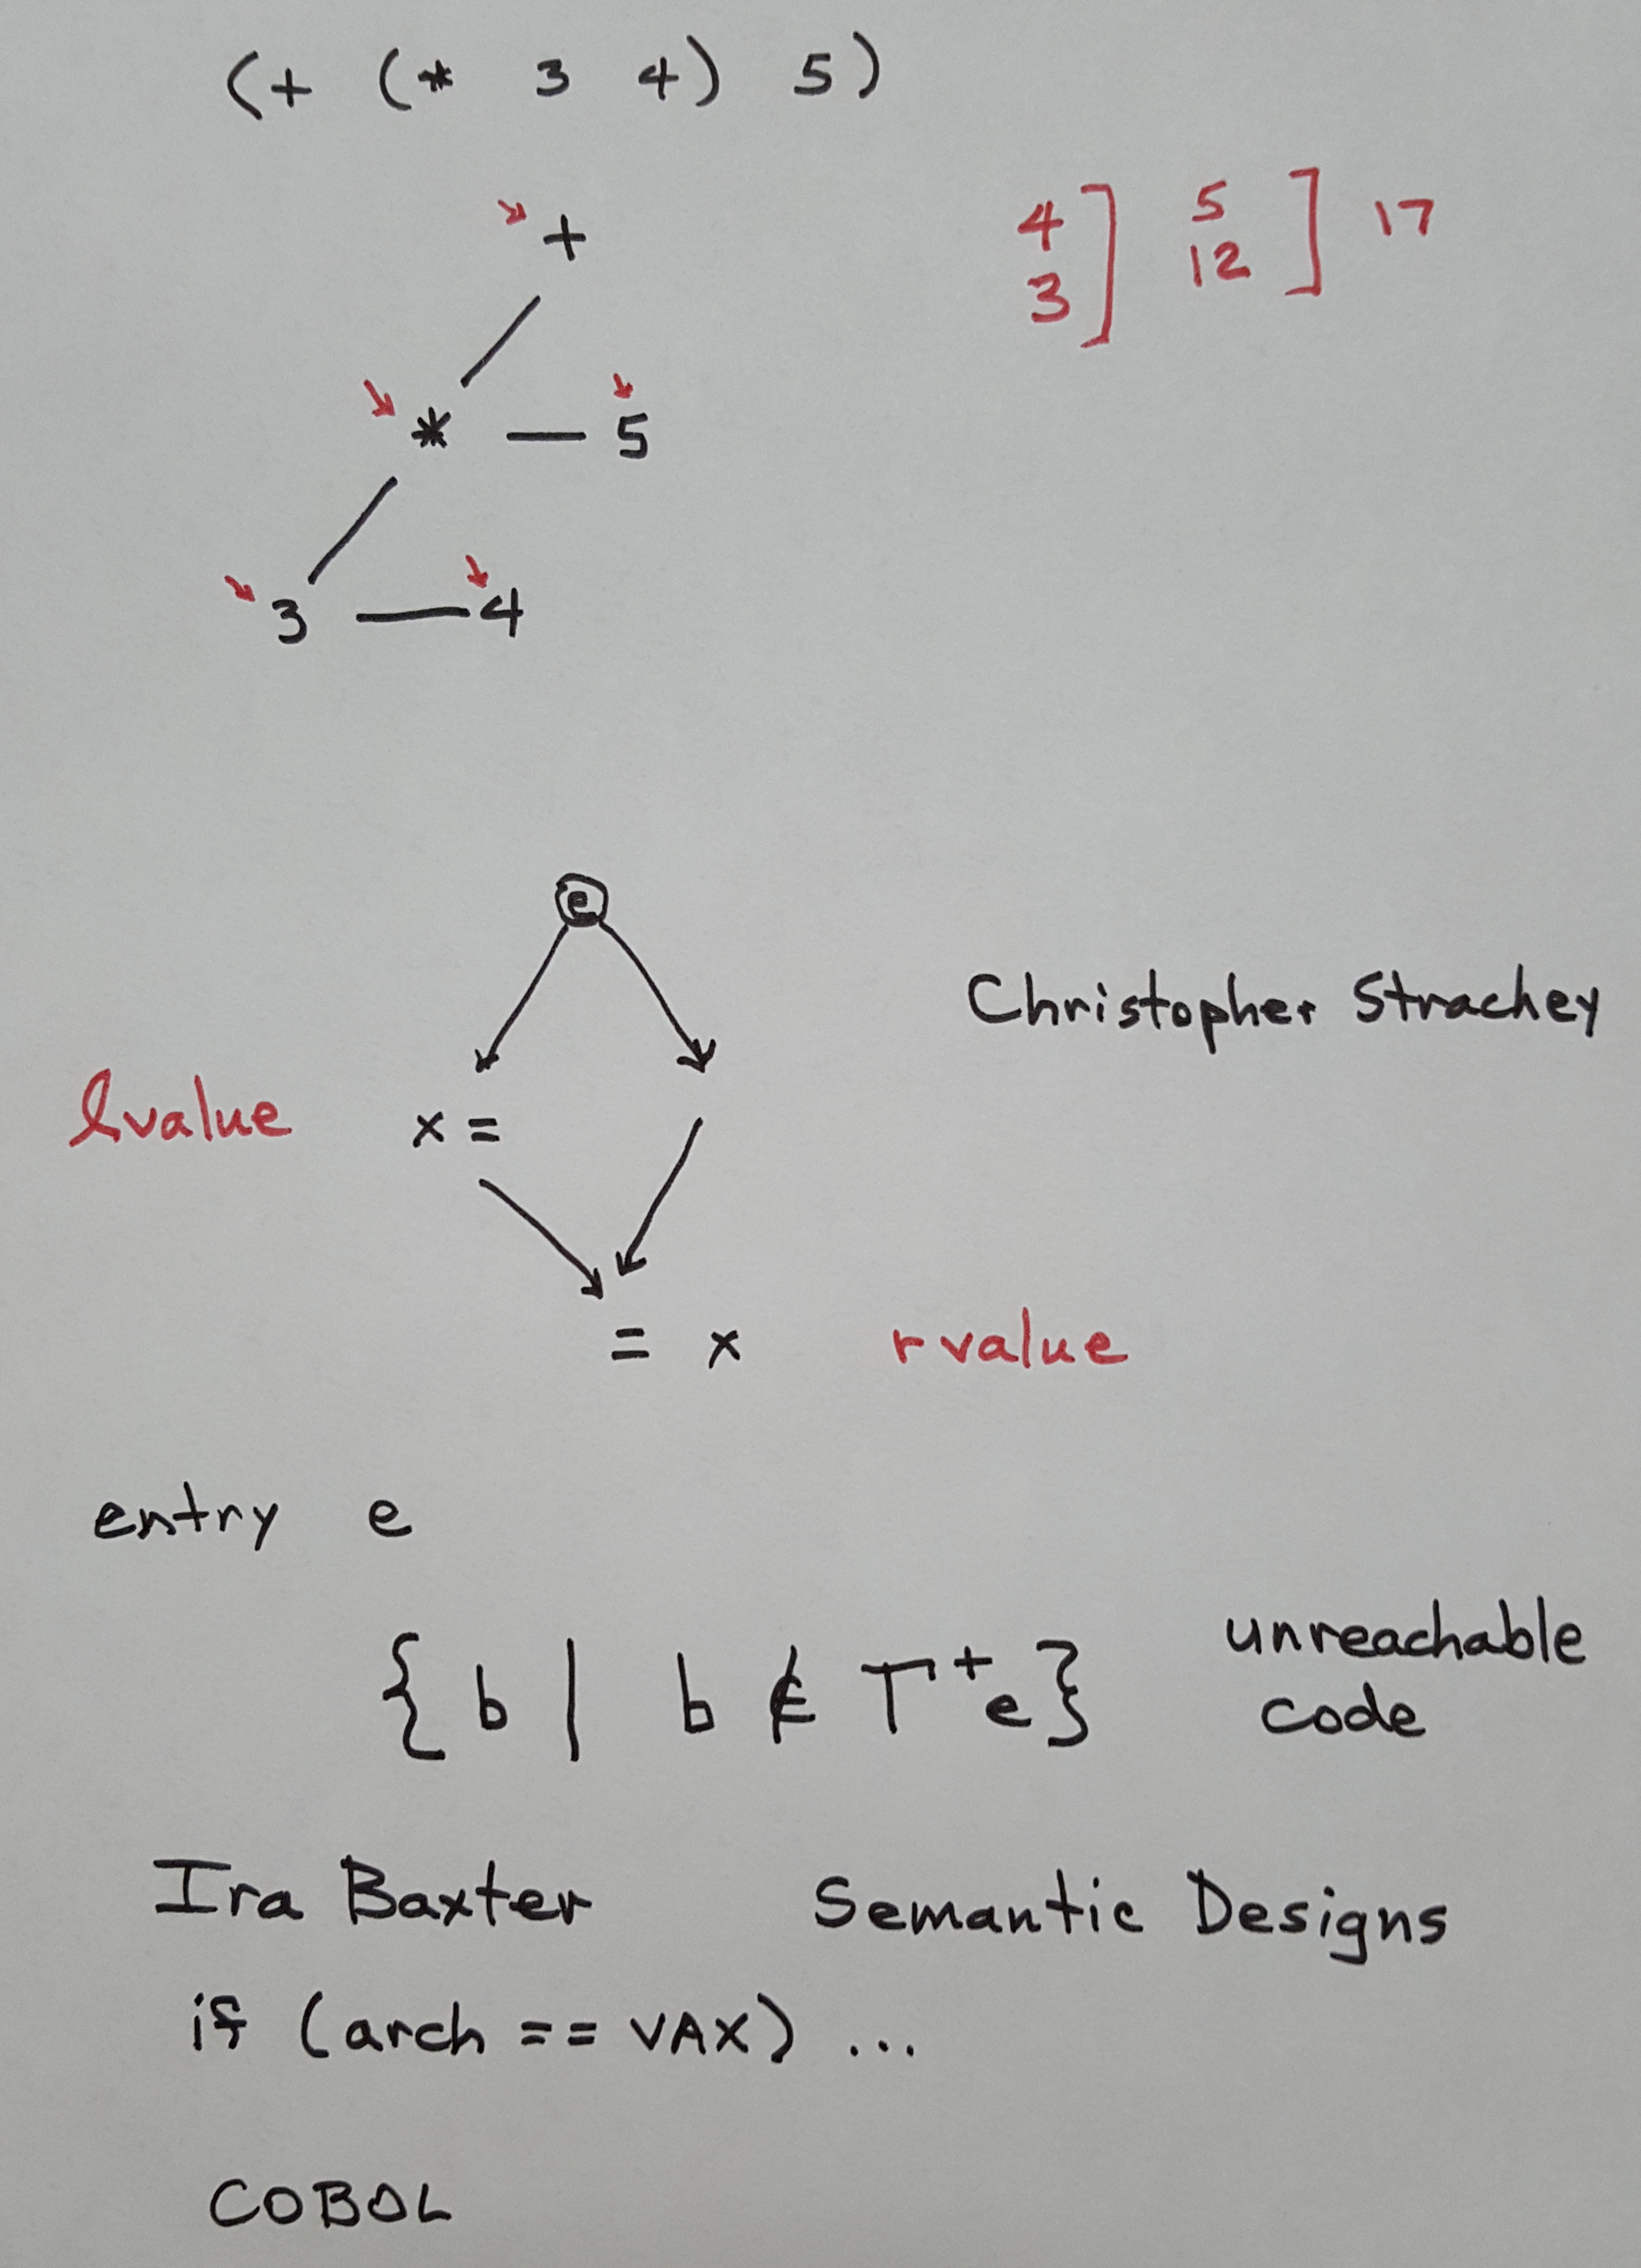 (+ (* 3 4) 5)
+
* — 5
3 — 4
4 ] 5 ] 17
3 12
e
Christopher Strachey
lvalue x =
= x rvalue
entry e
{b | b ∉ T⁺e} unreachable
code
Ira Baxter Semantic Designs
if (arch == VAX) ...
COBOL